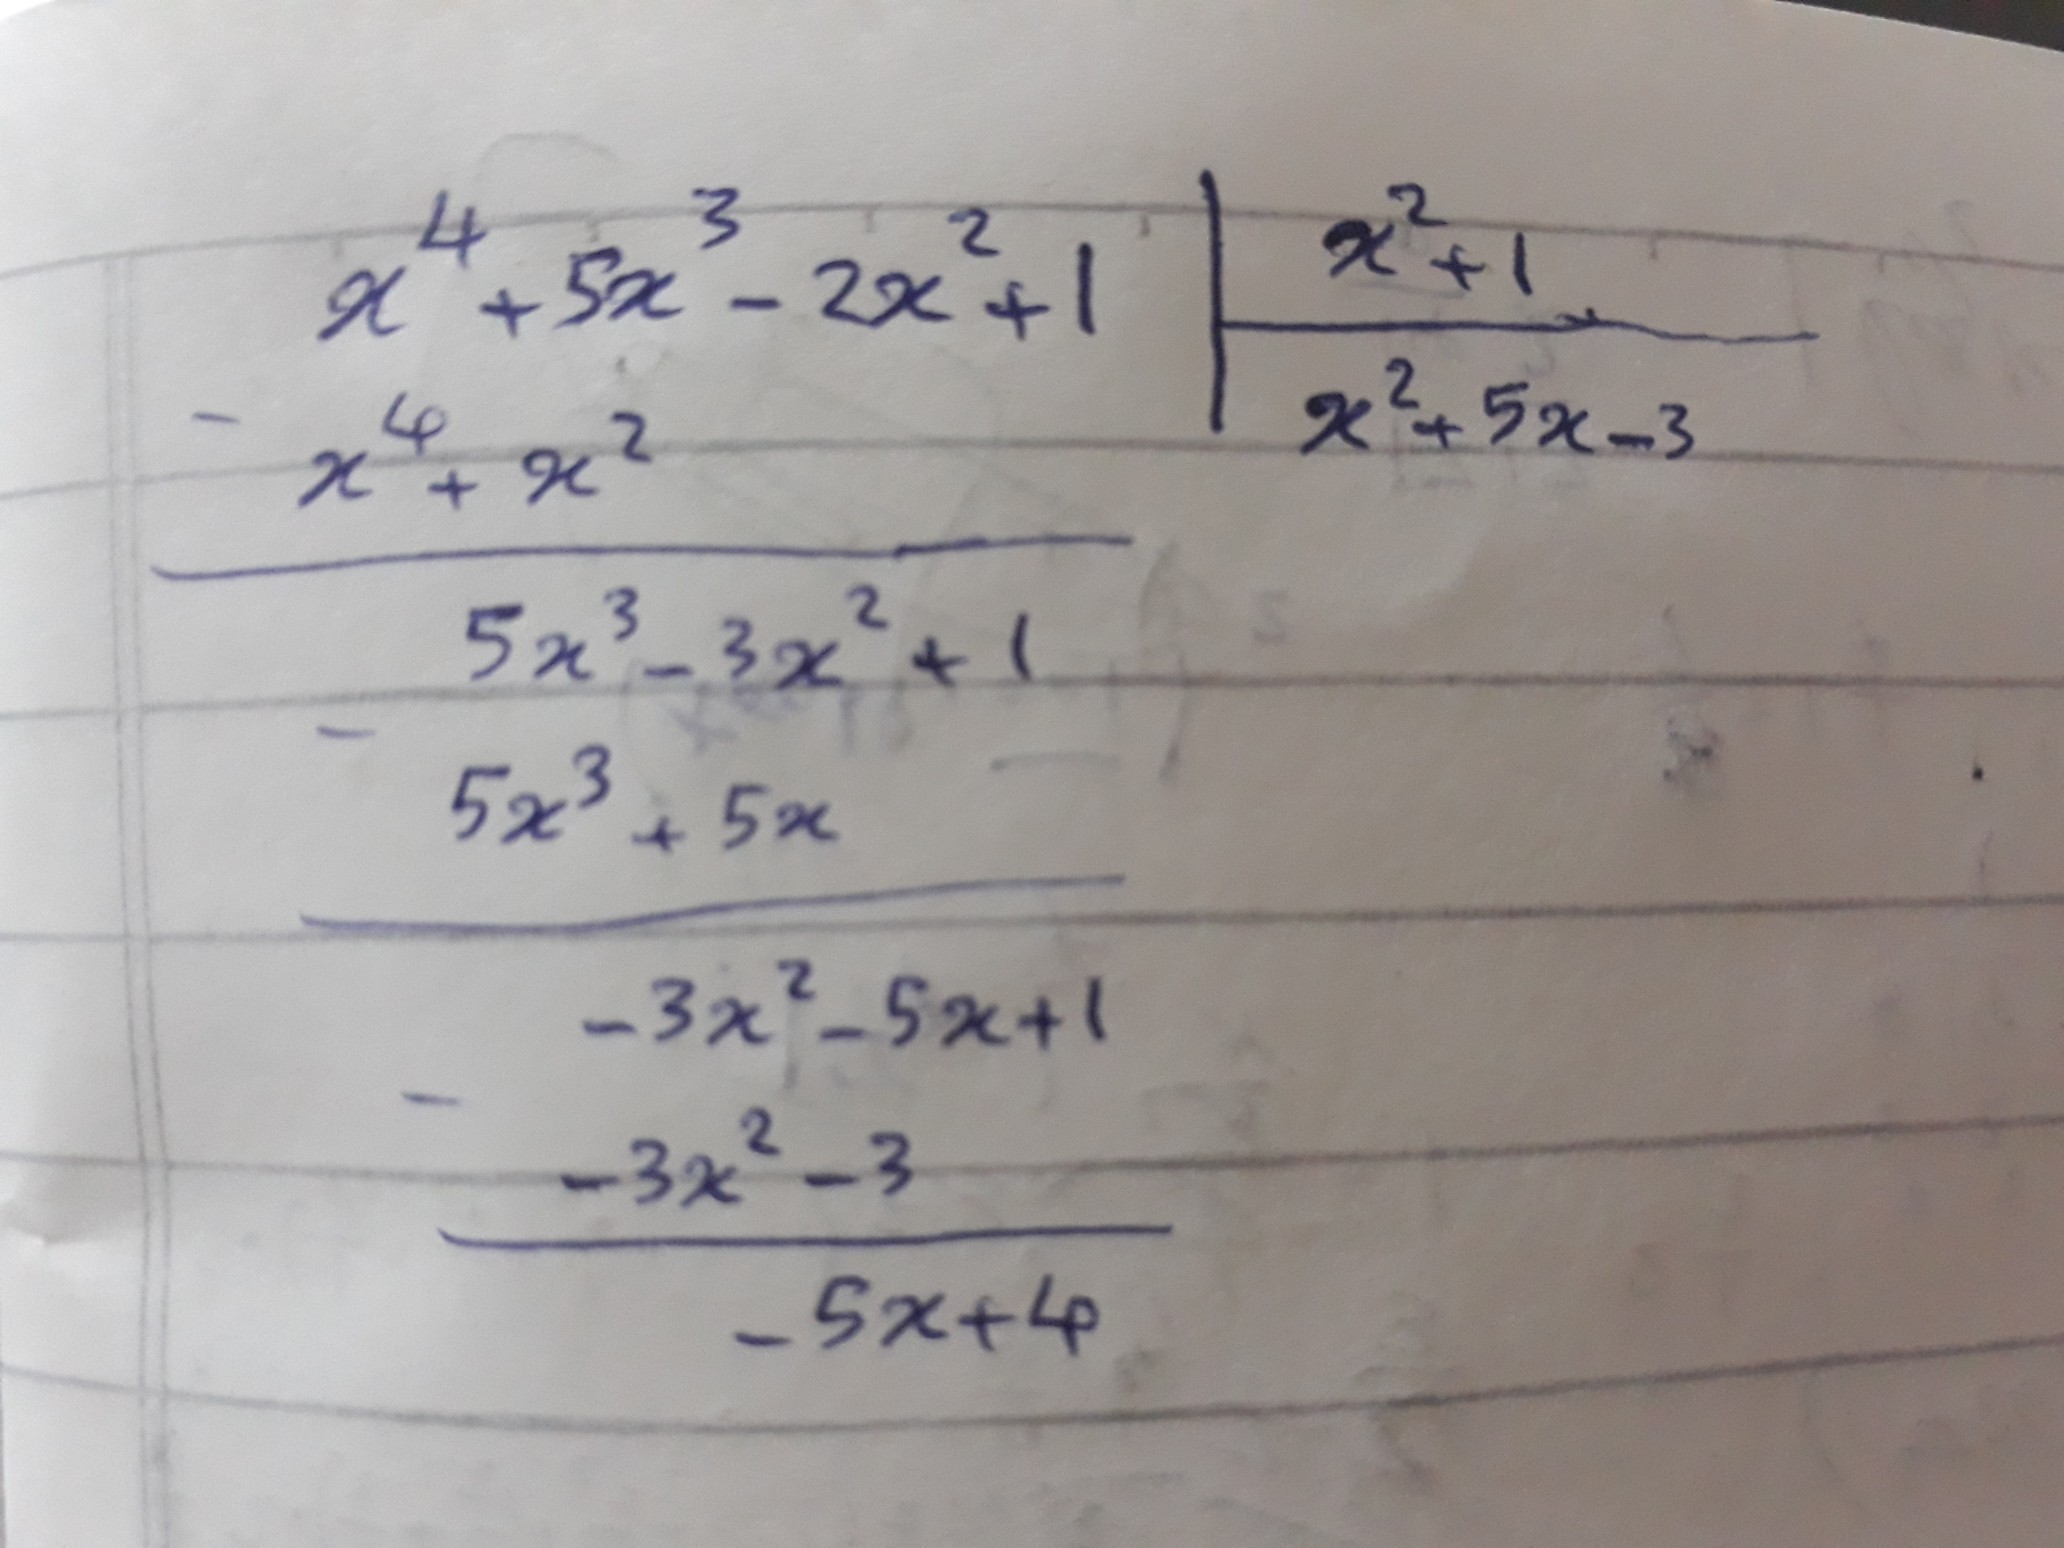 x⁴ + 5x³ - 2x² + 1 | x² + 1
x² + 5x - 3
- x⁴ + x²
5x³ - 3x² + 1
- 5x³ + 5x
-3x² - 5x + 1
- -3x² - 3
-5x + 4